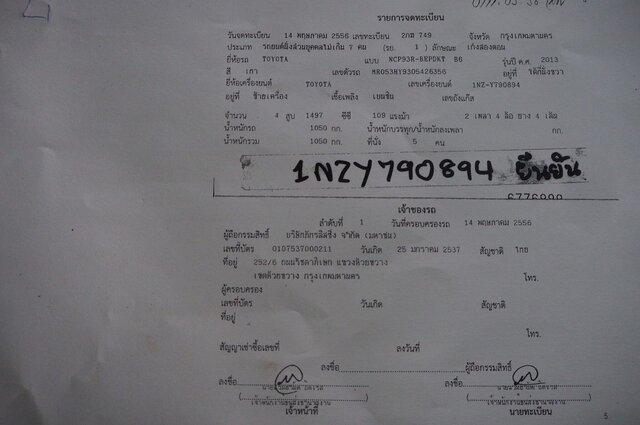 รายการจดทะเบียน
วันจดทะเบียน 14 พฤษภาคม 2556 เลขทะเบียน 2กฬ 749 จังหวัด กรุงเทพมหานคร
ประเภท รถยนต์นั่งส่วนบุคคลไม่เกิน 7 คน (รย. 1 ) ลักษณะ เก๋งสองตอน
ยี่ห้อรถ TOYOTA แบบ NCP93R-BEPDKT B6 รุ่นปี ค.ศ. 2013
สี เทา เลขตัวรถ MR053HY9305426356 อยู่ที่ ใต้ที่นั่งขวา
ยี่ห้อเครื่องยนต์ TOYOTA เลขเครื่องยนต์ 1NZ-Y790894
อยู่ที่ ซ้ายเครื่อง เชื้อเพลิง เบนซิน เลขถังแก๊ส
จำนวน 4 สูบ 1497 ซีซี 109 แรงม้า 2 เพลา 4 ล้อ ยาง 4 เส้น
น้ำหนักรถ 1050 กก. น้ำหนักบรรทุก/น้ำหนักลงเพลา กก.
น้ำหนักรวม 1050 กก. ที่นั่ง 5 คน
1NZY790894 ยืนยัน
เจ้าของรถ
ลำดับที่ 1 วันที่ครอบครองรถ 14 พฤษภาคม 2556
ผู้ถือกรรมสิทธิ์ บริษัทภัทรลิสซิ่ง จำกัด (มหาชน)
เลขที่บัตร 0107537000211 วันเกิด 25 มกราคม 2537 สัญชาติ ไทย
ที่อยู่ 252/6 ถนนรัชดาภิเษก แขวงห้วยขวาง
เขตห้วยขวาง กรุงเทพมหานคร โทร.
ผู้ครอบครอง
เลขที่บัตร วันเกิด สัญชาติ
ที่อยู่
โทร.
สัญญาเช่าซื้อเลขที่ ลงวันที่
ลงชื่อ ผู้ถือกรรมสิทธิ์
ลงชื่อ ลงชื่อ
เจ้าหน้าที่ นายทะเบียน
5